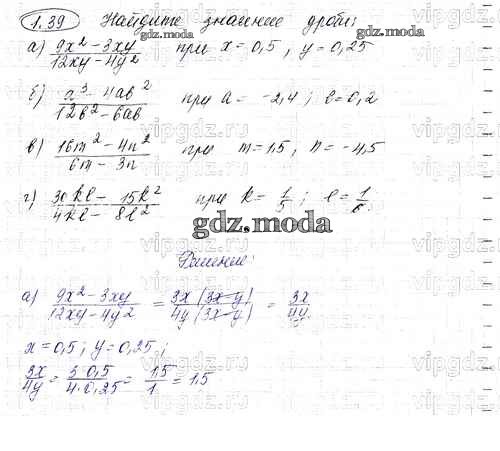 1.39 Найдите значение дроби:
а) 9x² - 3xy / 12xy - 4y² при x = 0,5, y = 0,25
б) a³ - 4ab² / 12b² - 6ab при a = -2,4; b = 0,2
в) 16m² - 4n² / 6m - 3n при m = 1,5, n = -4,5
г) 30kl - 15k² / 4kl - 8l² при k = 1/5; l = 1/6.
gdz.moda
Решение:
а) 9x² - 3xy / 12xy - 4y² = 3x(3x-y) / 4y(3x-y) = 3x / 4y.
x = 0,5; y = 0,25;
3x / 4y = 3·0,5 / 4·0,25 = 1,5 / 1 = 1,5
vipgdz.ru